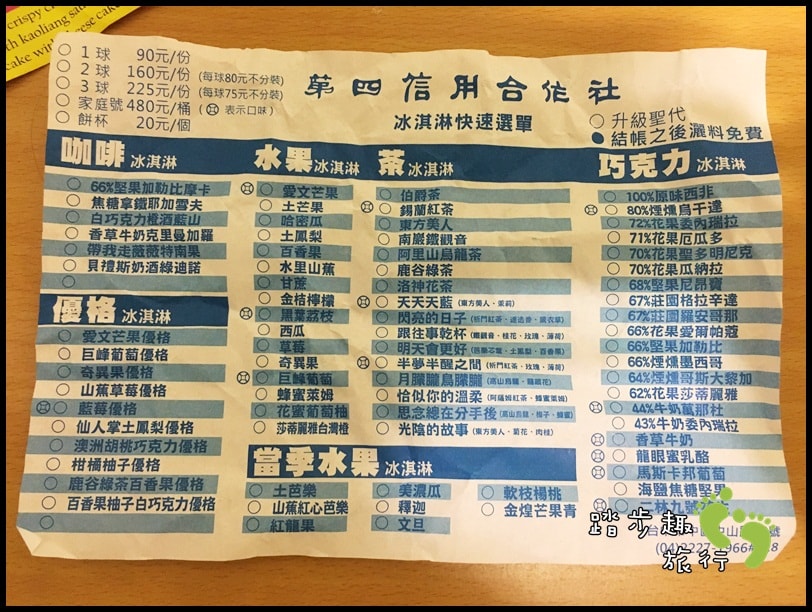 crispy c
th kaoliang
cake with cheese cake
1 球 90元/份
2 球 160元/份 (每球80元不分裝)
3 球 225元/份 (每球75元不分裝)
家庭號 480元/桶 (表示口味)
餅杯 20元/個
第四信用合作社
冰淇淋快速選單
升級聖代
結帳之後灑料免費
咖啡 冰淇淋
66%堅果加勒比摩卡
焦糖拿鐵耶加雪夫
白巧克力橙酒藍山
香草牛奶克里曼加羅
帶我走薇薇特南果
貝禮斯奶酒綠迪諾
優格 冰淇淋
愛文芒果優格
巨峰葡萄優格
奇異果優格
山蕉草莓優格
藍莓優格
仙人掌土鳳梨優格
澳洲胡桃巧克力優格
柑橘柚子優格
鹿谷綠茶百香果優格
百香果柚子白巧克力優格
水果 冰淇淋
愛文芒果
土芒果
哈密瓜
土鳳梨
百香果
水里山蕉
甘蔗
金桔檸檬
黑葉荔枝
西瓜
草莓
奇異果
巨峰葡萄
蜂蜜萊姆
花蜜葡萄柚
莎蒂麗雅台灣橙
茶 冰淇淋
伯爵茶
錫蘭紅茶
東方美人
南巖鐵觀音
阿里山烏龍茶
鹿谷綠茶
洛神花茶
天天天藍 (東方美人、茉莉)
閃亮的日子 (祈門紅茶、迷迭香、薰衣草)
跟往事乾杯 (鐵觀音、桂花、玫瑰、薄荷)
明天會更好
半夢半醒之間 (祈門紅茶、玫瑰、薄荷)
月朦朧鳥朦朧
恰似你的溫柔 (阿薩姆紅茶、蜂蜜萊姆)
思念總在分手後 (高山烏龍、柚子、蜂蜜)
光陰的故事 (東方美人、菊花、肉桂)
巧克力 冰淇淋
100%原味西非
80%煙燻烏干達
72%花果委內瑞拉
71%花果厄瓜多
70%花果聖多明尼克
70%花果瓜納拉
68%堅果尼昂寶
67%莊園格拉辛達
67%莊園羅安哥那
66%花果愛爾帕蔻
66%堅果加勒比
66%煙燻墨西哥
64%煙燻哥斯大黎加
62%花果莎蒂麗雅
44%牛奶萬那杜
43%牛奶委內瑞拉
香草牛奶
龍眼蜜乳酪
馬斯卡邦葡萄
海鹽焦糖堅果
當季水果 冰淇淋
土芭樂
山蕉紅心芭樂
紅龍果
美濃瓜
釋迦
文旦
軟枝楊桃
金煌芒果青
踏步趣
旅行